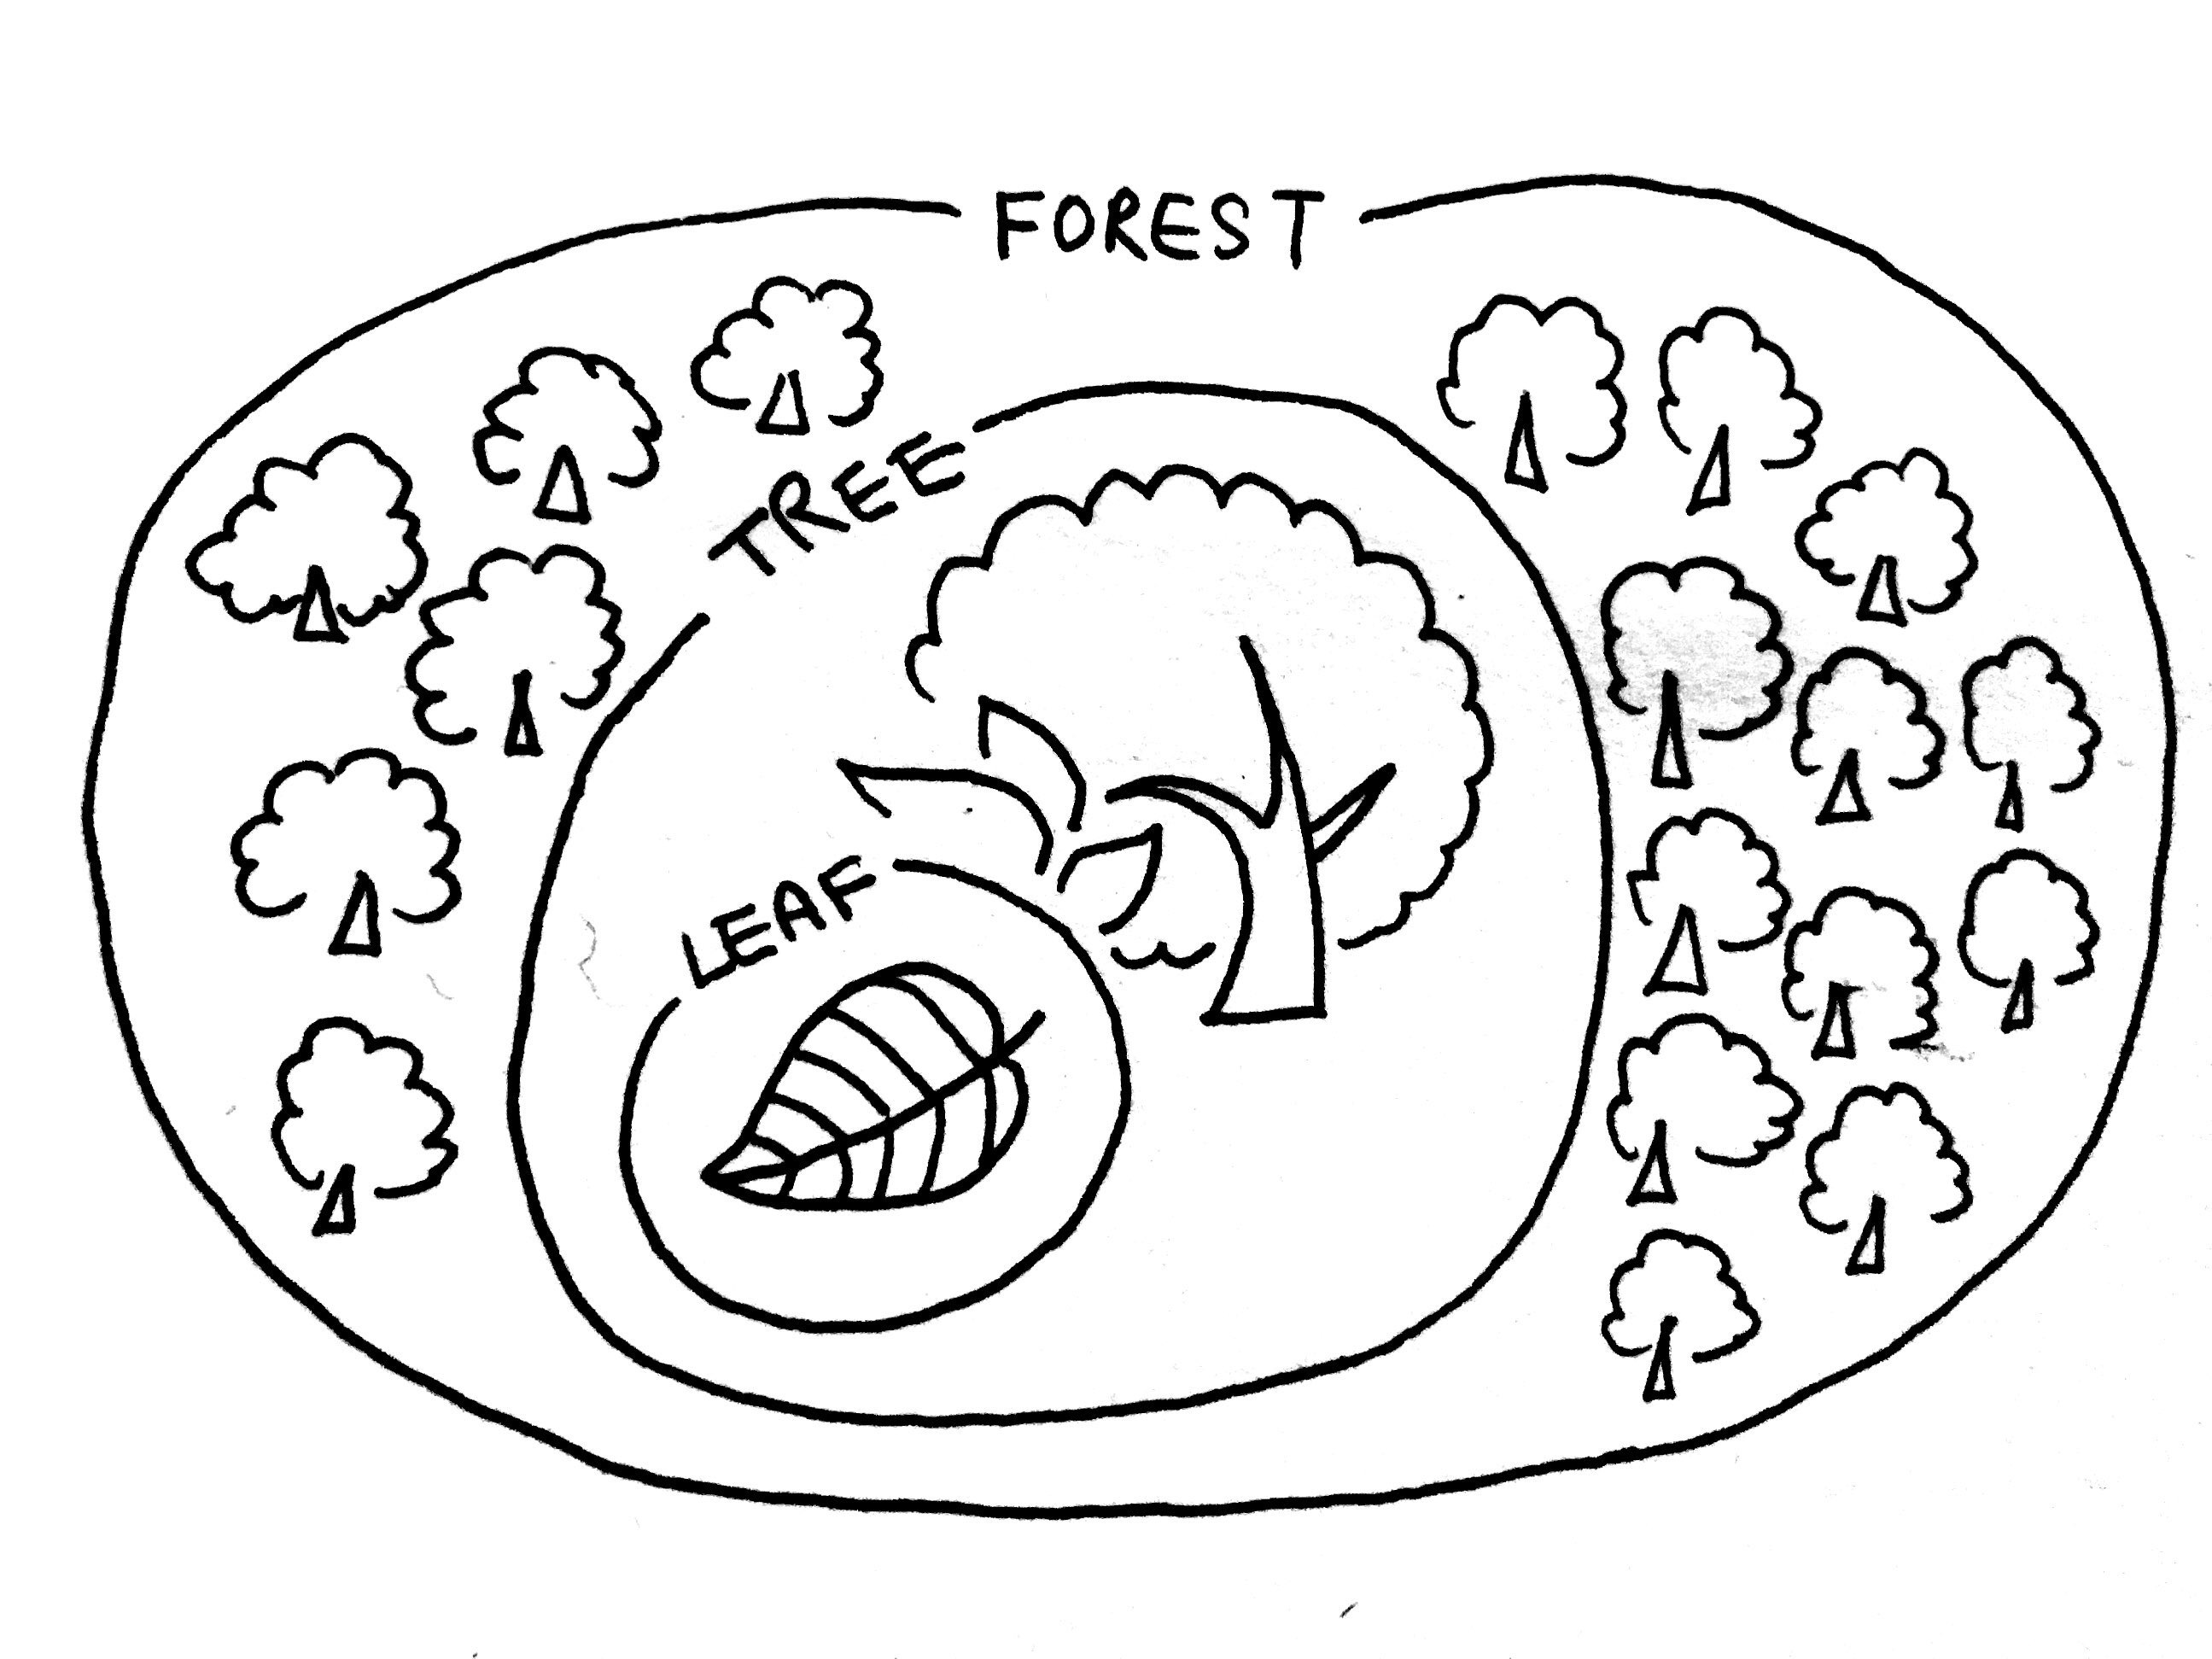 FOREST
TREE
LEAF